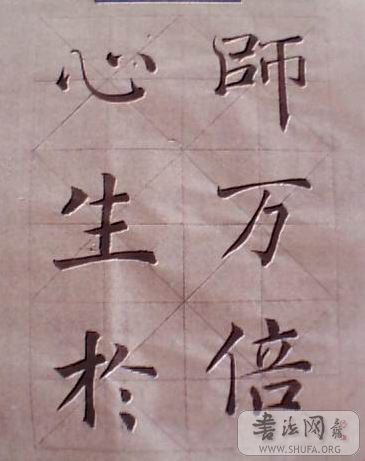 師万倍
心生於
書法网
WWW.SHUFA.ORG